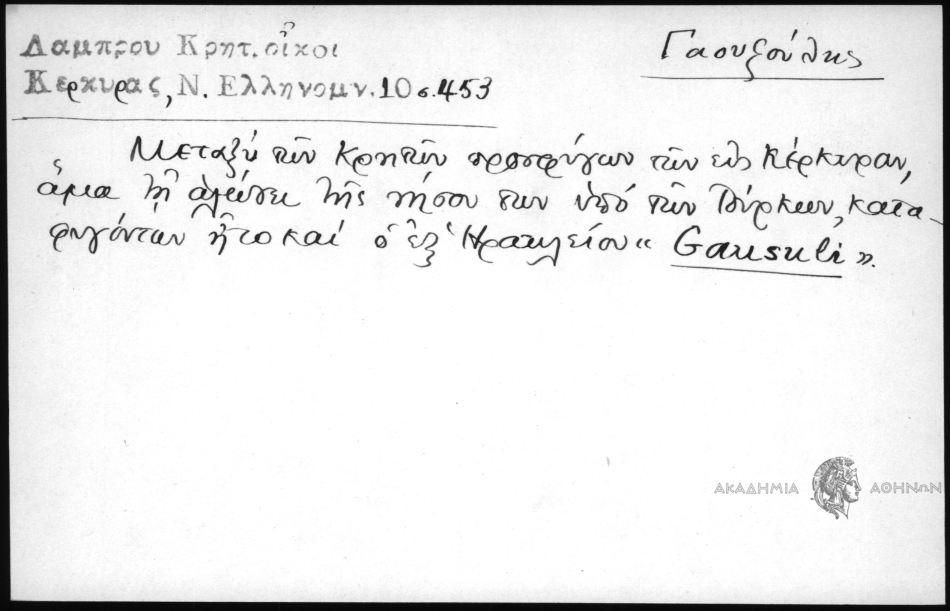 Λαμπρου Κρητ. οἶκοι
Γαουζούλης
Κερκυρας, Ν. Ελληνομν. 10 σ. 453
Μεταξύ τῶν Κρητῶν προσφύγων τῶν εἰς Κέρκυραν,
ἅμα τῇ ἁλώσει τῆς νήσου των ὑπό τῶν Τούρκων, κατα-
φυγόντων ἦτο καί ὁ ἐξ Ἡρακλείου « Gausuli ».
ΑΚΑΔΗΜΙΑ ΑΘΗΝΩΝ